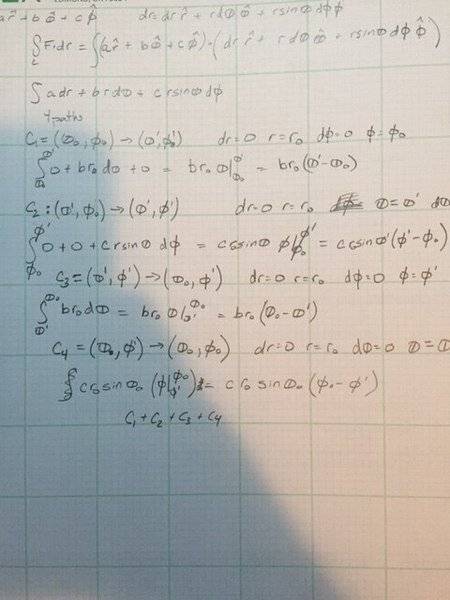 ar̂ + bθ̂ + cφ̂ dr = dr r̂ + rdθ θ̂ + rsinθ dφ φ̂
∫_L F·dr = ∫(ar̂ + bθ̂ + cφ̂)·(dr r̂ + r dθ θ̂ + rsinθ dφ φ̂)
∫ a dr + b r dθ + c r sinθ dφ
4 paths
C₁ = (θ₀, φ₀) → (θ', φ₀') dr=0 r=r₀ dφ=0 φ=φ₀
∫_θ₀^θ' 0 + br₀ dθ + 0 = br₀ θ|_θ₀^θ' = br₀(θ'-θ₀)
C₂: (θ', φ₀) → (θ', φ') dr=0 r=r₀ θ=θ' dθ
∫_φ₀^φ' 0 + 0 + c r sinθ dφ = c r₀ sinθ φ|_φ₀^φ' = c r₀ sinθ' (φ'-φ₀)
C₃ = (θ', φ') → (θ₀, φ') dr=0 r=r₀ dφ=0 φ=φ'
∫_θ'^θ₀ br₀ dθ = br₀ θ|_θ'^θ₀ = br₀ (θ₀-θ')
C₄ = (θ₀, φ') → (θ₀, φ₀) dr=0 r=r₀ dθ=0 θ=θ
∫ c r₀ sinθ₀ (φ|_φ'^φ₀) = c r₀ sinθ₀ (φ₀-φ')
C₁ + C₂ + C₃ + C₄